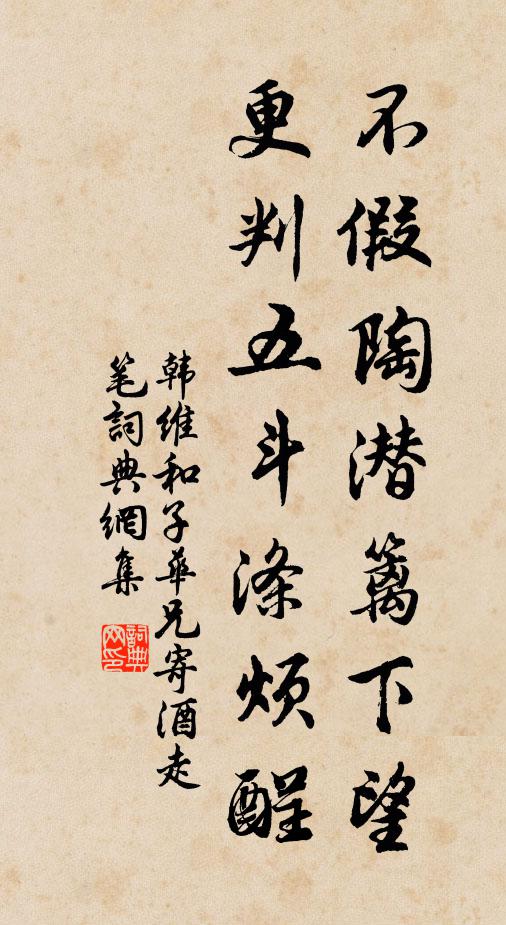 不假陶潜篱下望
更判五斗涤烦酲
韩维和子華兄寄酒走
笔詞典網集
詞典
网印